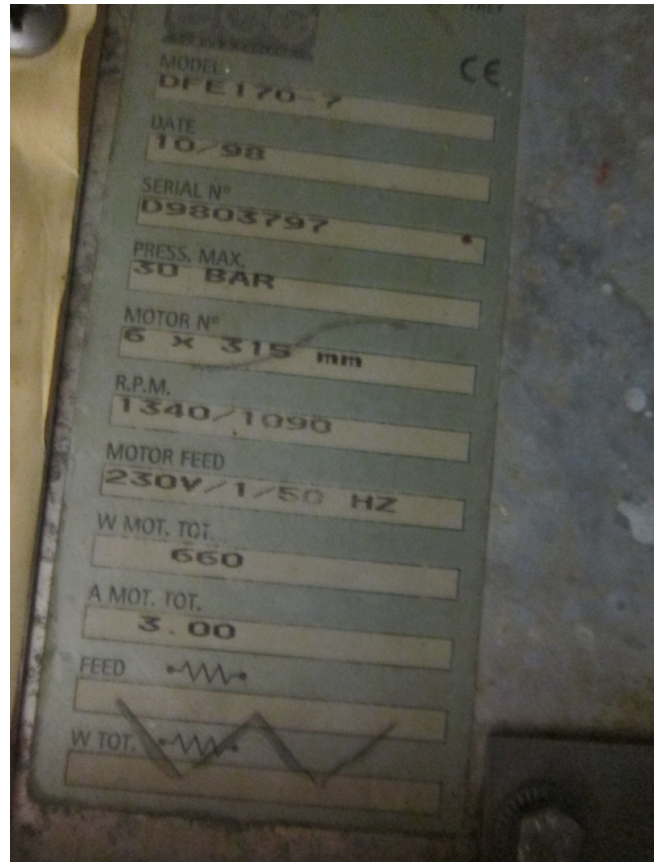 ITALY
MODEL
CE
DFE170-7
DATE
10/98
SERIAL Nº
D9803797
PRESS. MAX.
30 BAR
MOTOR Nº
6 x 315 mm
R.P.M.
1340/1090
MOTOR FEED
230V/1/50 HZ
W MOT. TOT.
660
A MOT. TOT.
3.00
FEED
W TOT.